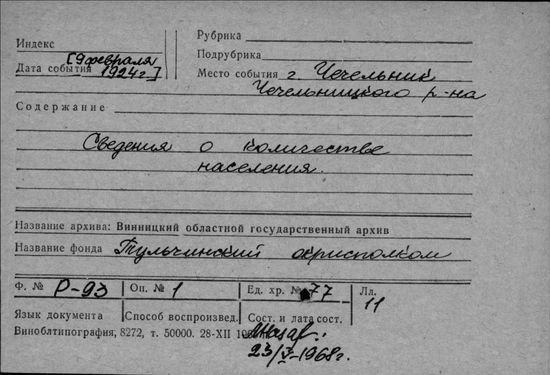 Индекс
Дата события
[9 февраля
1924 г.]
Рубрика
Подрубрика
Место события г. Чечельник
Чечельницкого р-на
Содержание
Сведения о количестве
населения.
Название архива: Винницкий областной государственный архив
Название фонда Тульчинский окрисполком
Ф. № Р-93 Оп. № 1 Ед. хр. № 77 Лл. 11
Язык документа Способ воспроизвед. Сост. и дата сост.
Виноблтипография, 8272, т. 50000. 28-XII
23/V-1968г.